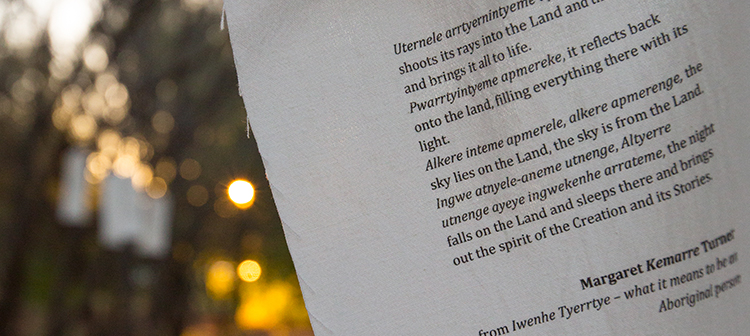 Uternele arrtyernintyeme
shoots its rays into the Land and th
and brings it all to life.
Pwarrtyintyeme apmereke, it reflects back
onto the land, filling everything there with its
light.
Alkere inteme apmerele, alkere apmerenge, the
sky lies on the Land, the sky is from the Land.
Ingwe atnyele-aneme utnenge, Altyerre
utnenge ayeye ingwekenhe arrateme, the night
falls on the Land and sleeps there and brings
out the spirit of the Creation and its Stories.
Margaret Kemarre Turner
from Iwenhe Tyerrtye – what it means to be an
Aboriginal person